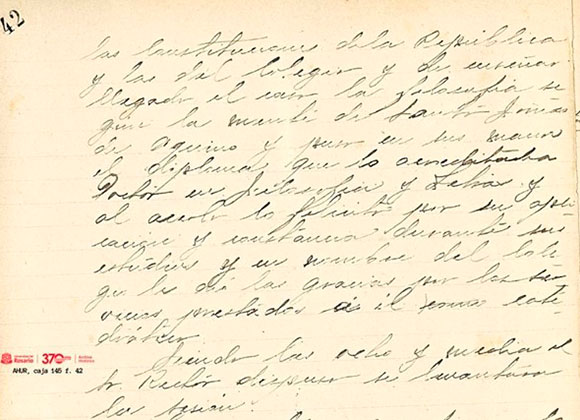 42
las Constituciones de la República
y las del Colegio y de enseñar
llegado el caso la filosofía se
gún la mente de Santo Tomás
de Aquino y puso en sus manos
el diploma que lo acreditaba
Doctor en filosofía y Letras y
al acto lo felicitó por su apli
cación y constancia durante sus
estudios y en nombre del Cole
gio le dio las gracias por los ser
vicios prestados a él como cate
drático.
Siendo las ocho y media el
Sr. Rector dispuso se levantara
la sesión.
Universidad del Rosario 370 AÑOS Archivo Histórico
AHUR, caja 145 f. 42